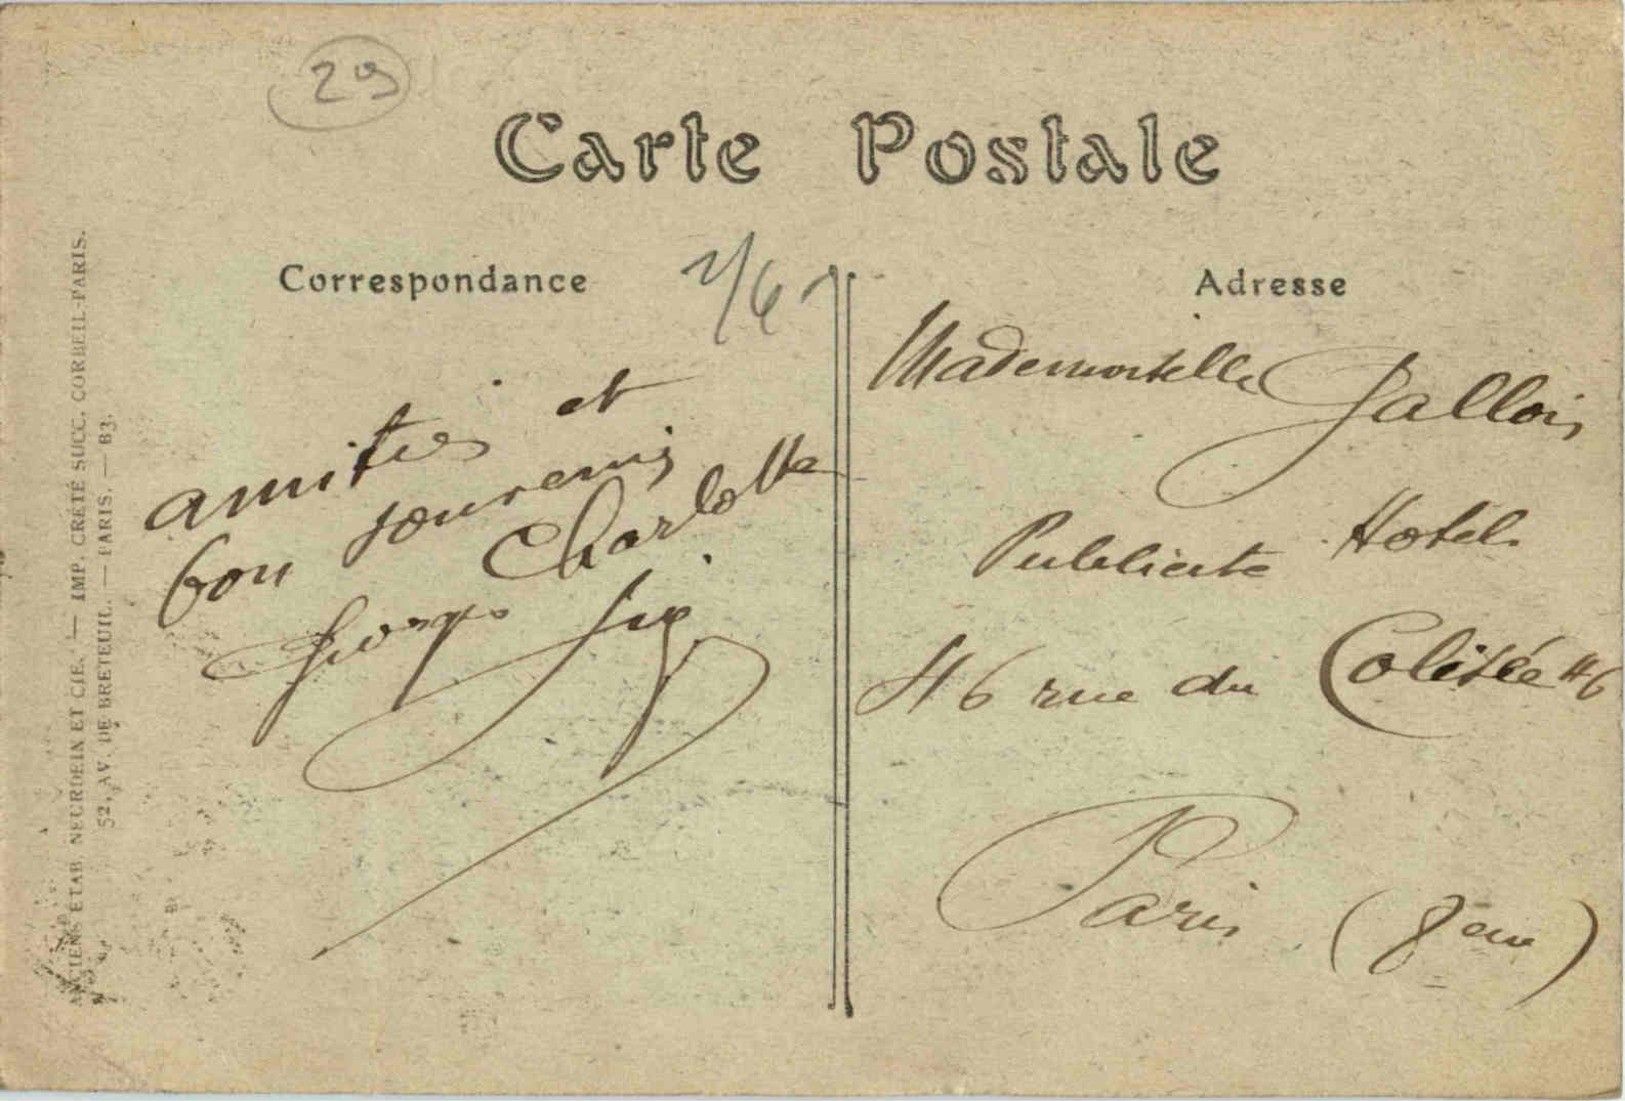 29
Carte Postale
Correspondance
Adresse
amitiés et
bon souvenir
Charlotte
Mademoiselle Gallois
Publicité Hotel
46 rue du Colisée 46
Paris (8eme)
ANCIENS ETAB. NEURDEIN ET CIE. — IMP. CRÉTÉ SUCC. CORBEIL-PARIS.
52, AV. DE BRETEUIL. — PARIS. — 63.